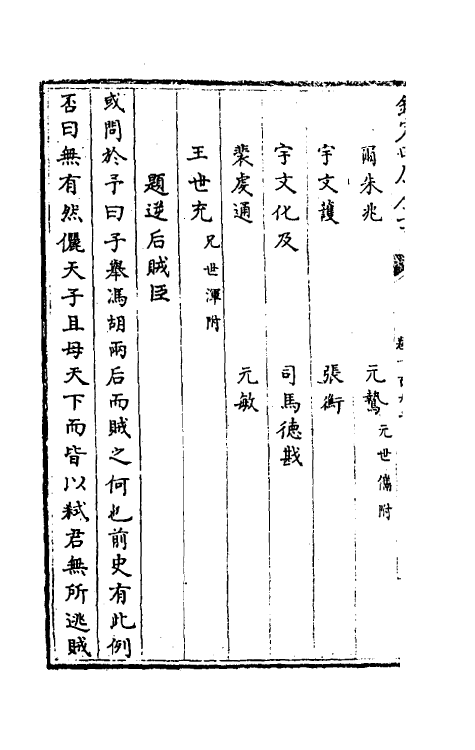 爾朱兆　元鷙元世儁附
宇文護　張衡
宇文化及　司馬德戡
裴虔通　元敏
王世充兄世渾附
題逆后賊臣
或問於予曰子舉馮胡兩后而賊之何也前史有此例
否曰無有然儷天子且母天下而皆以弒君無所逃賊